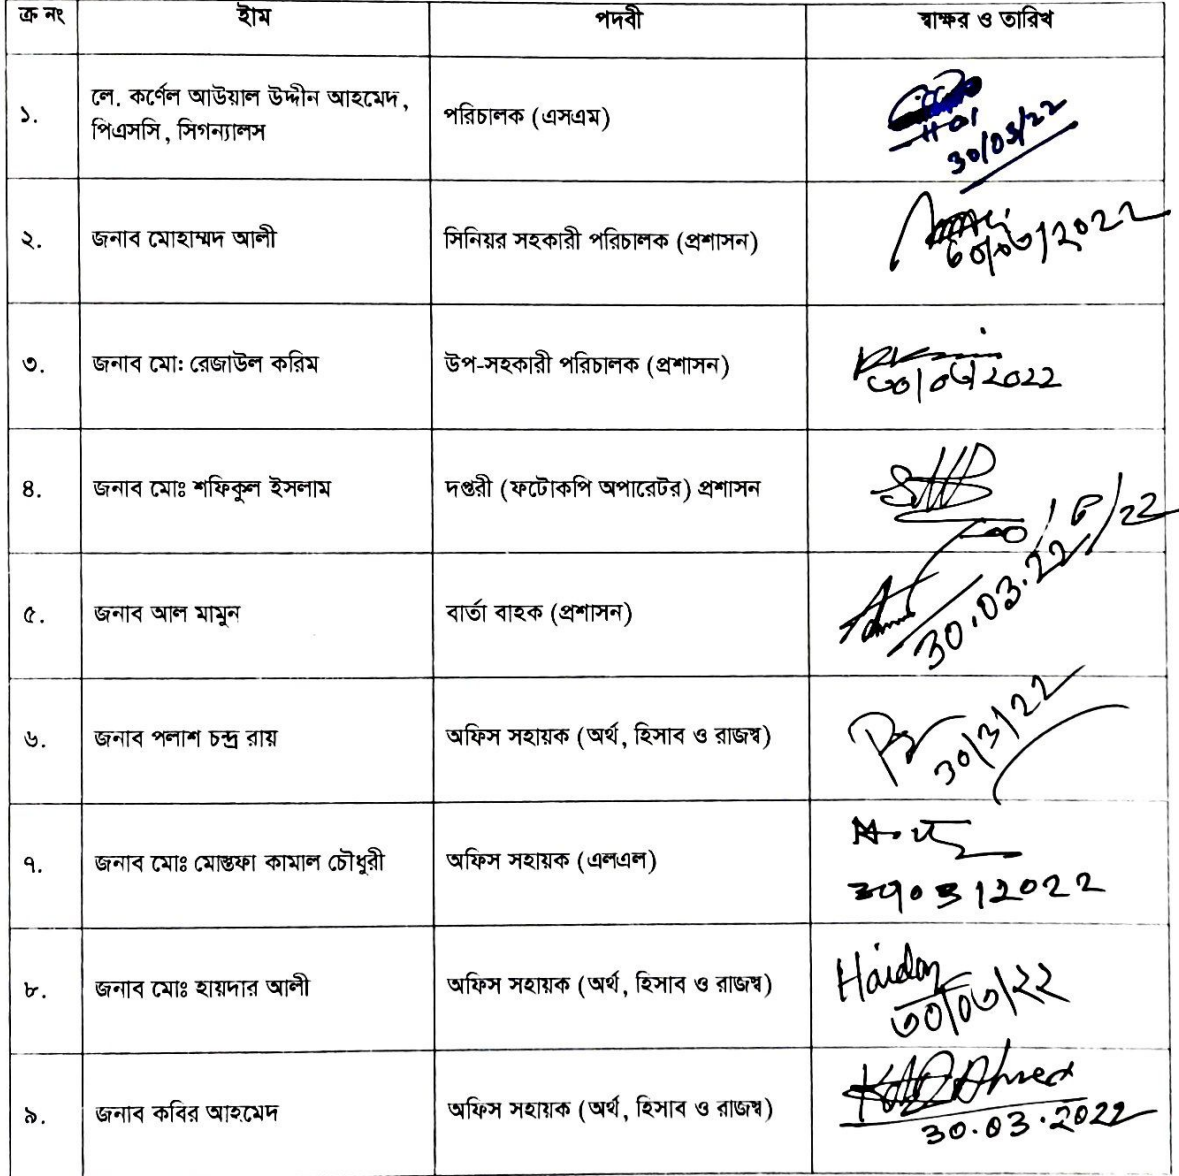 ক্র নং ইাম পদবী স্বাক্ষর ও তারিখ
১. লে. কর্ণেল আউয়াল উদ্দীন আহমেদ, পিএসসি, সিগন্যালস পরিচালক (এসএম) 30/03/22
২. জনাব মোহাম্মদ আলী সিনিয়র সহকারী পরিচালক (প্রশাসন) ৩০/০৩/২০২২
৩. জনাব মো: রেজাউল করিম উপ-সহকারী পরিচালক (প্রশাসন) ৩০/০৩/২০২২
৪. জনাব মোঃ শফিকুল ইসলাম দপ্তরী (ফটোকপি অপারেটর) প্রশাসন
৫. জনাব আল মামুন বার্তা বাহক (প্রশাসন) 30.03.22
৬. জনাব পলাশ চন্দ্র রায় অফিস সহায়ক (অর্থ, হিসাব ও রাজস্ব) 30/3/22
৭. জনাব মোঃ মোস্তফা কামাল চৌধুরী অফিস সহায়ক (এলএল)
৮. জনাব মোঃ হায়দার আলী অফিস সহায়ক (অর্থ, হিসাব ও রাজস্ব) Haidar ৩০/০৩/২২
৯. জনাব কবির আহমেদ অফিস সহায়ক (অর্থ, হিসাব ও রাজস্ব) 30.03.2022